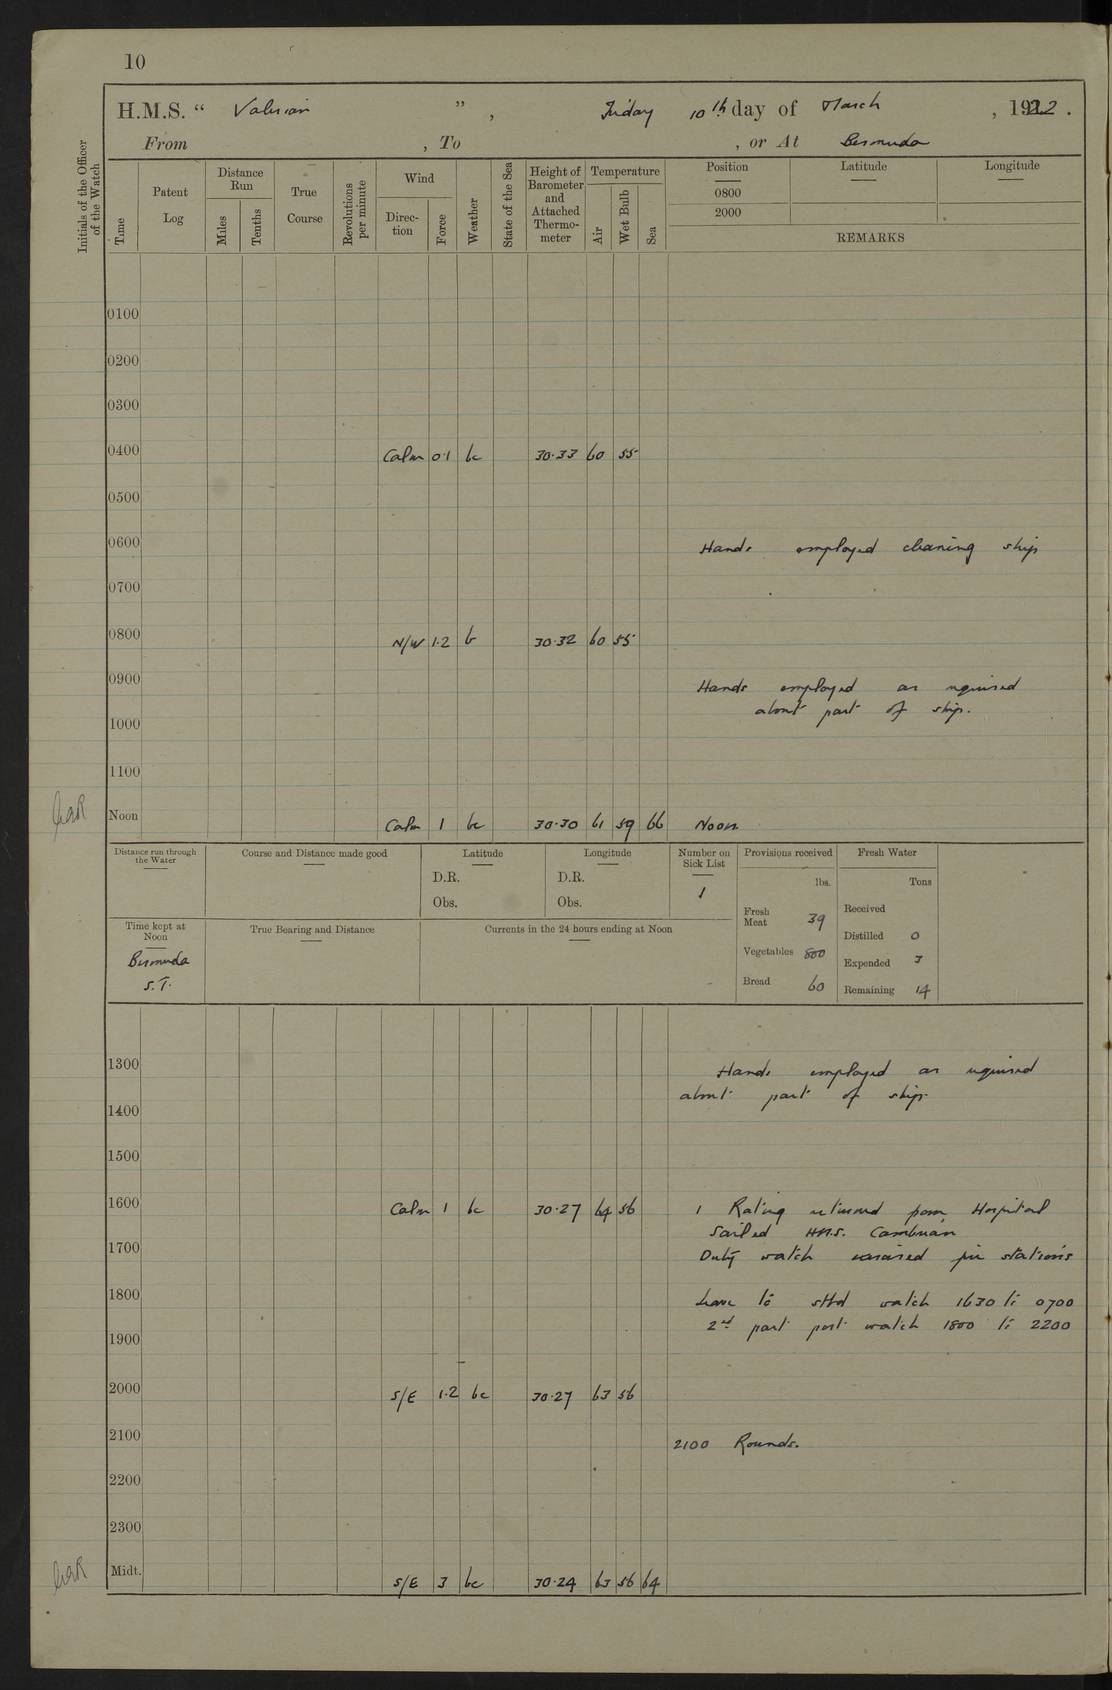 10
H.M.S. " Valerian ", Friday 10th day of March, 1922.
From , To , or At Bermuda
Initials of the Officer of the Watch
Time
Patent Log
Distance Run
Miles
Tenths
True Course
Revolutions per minute
Wind
Direc-tion
Force
Weather
State of the Sea
Height of Barometer and Attached Thermo-meter
Temperature
Air
Wet Bulb
Sea
Position Latitude Longitude
0800
2000
REMARKS
0100
0200
0300
0400 Calm 0.1 bc 30.33 60 55
0500
0600 Hands employed cleaning ship
0700
0800 N/W 1.2 b 30.32 60 55
0900 Hands employed as required
about part of ship.
1000
1100
Noon Calm 1 bc 30.30 61 59 66 Noon.
Distance run through the Water
Course and Distance made good
Latitude
D.R.
Obs.
Longitude
D.R.
Obs.
Number on Sick List
1
Provisions received
lbs.
Fresh Meat 39
Vegetables 800
Bread 60
Fresh Water
Tons
Received
Distilled 0
Expended 3
Remaining 14
Time kept at Noon
Bermuda
S.T.
True Bearing and Distance
Currents in the 24 hours ending at Noon
1300 Hands employed as required
about part of ship.
1400
1500
1600 Calm 1 bc 30.27 64 56 1 Rating returned from Hospital
Sailed H.M.S. Cambrian
1700 Duty watch exercised fire stations
1800 Leave to stbd watch 1630 to 0700
2nd part port watch 1800 to 2200
1900
2000 S/E 1.2 bc 30.27 63 56
2100 2100 Rounds.
2200
2300
Midt. S/E 3 bc 30.24 63 56 64